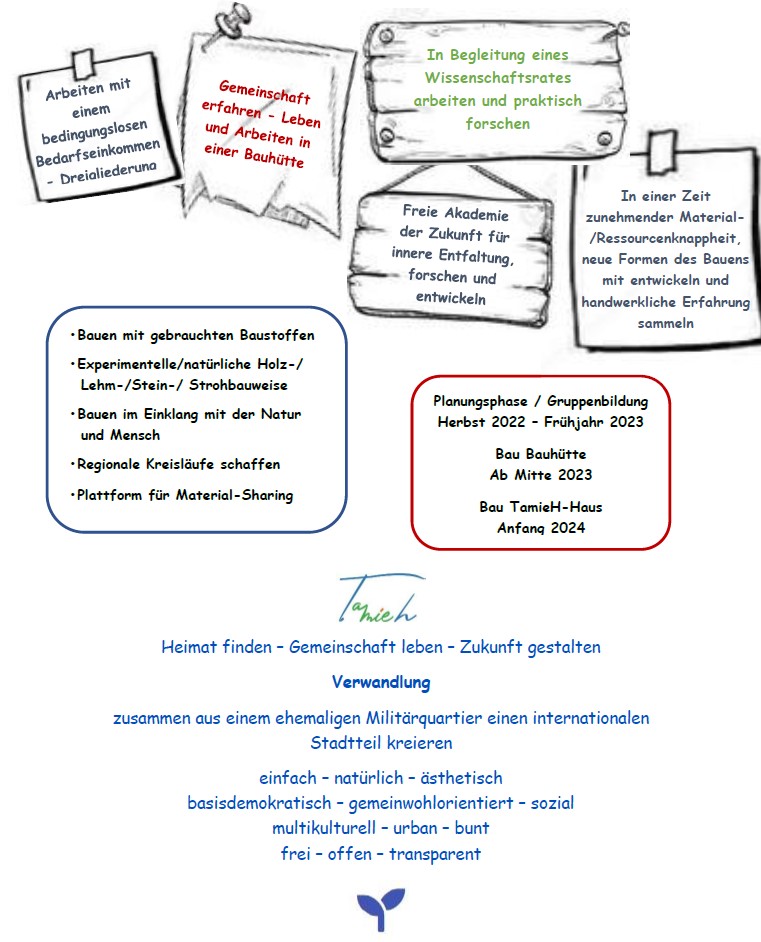 Arbeiten mit
einem
bedingungslosen
Bedarfseinkommen
- Dreialiederung
Gemeinschaft
erfahren - Leben
und Arbeiten in
einer Bauhütte
In Begleitung eines
Wissenschaftsrates
arbeiten und praktisch
forschen
Freie Akademie
der Zukunft für
innere Entfaltung,
forschen und
entwickeln
In einer Zeit
zunehmender Material-
/Ressourcenknappheit,
neue Formen des Bauens
mit entwickeln und
handwerkliche Erfahrung
sammeln
•Bauen mit gebrauchten Baustoffen
•Experimentelle/natürliche Holz-/
Lehm-/Stein-/ Strohbauweise
•Bauen im Einklang mit der Natur
und Mensch
•Regionale Kreisläufe schaffen
•Plattform für Material-Sharing
Planungsphase / Gruppenbildung
Herbst 2022 – Frühjahr 2023
Bau Bauhütte
Ab Mitte 2023
Bau TamieH-Haus
Anfang 2024
Tamieh
Heimat finden – Gemeinschaft leben – Zukunft gestalten
Verwandlung
zusammen aus einem ehemaligen Militärquartier einen internationalen
Stadtteil kreieren
einfach – natürlich – ästhetisch
basisdemokratisch – gemeinwohlorientiert – sozial
multikulturell – urban – bunt
frei – offen – transparent